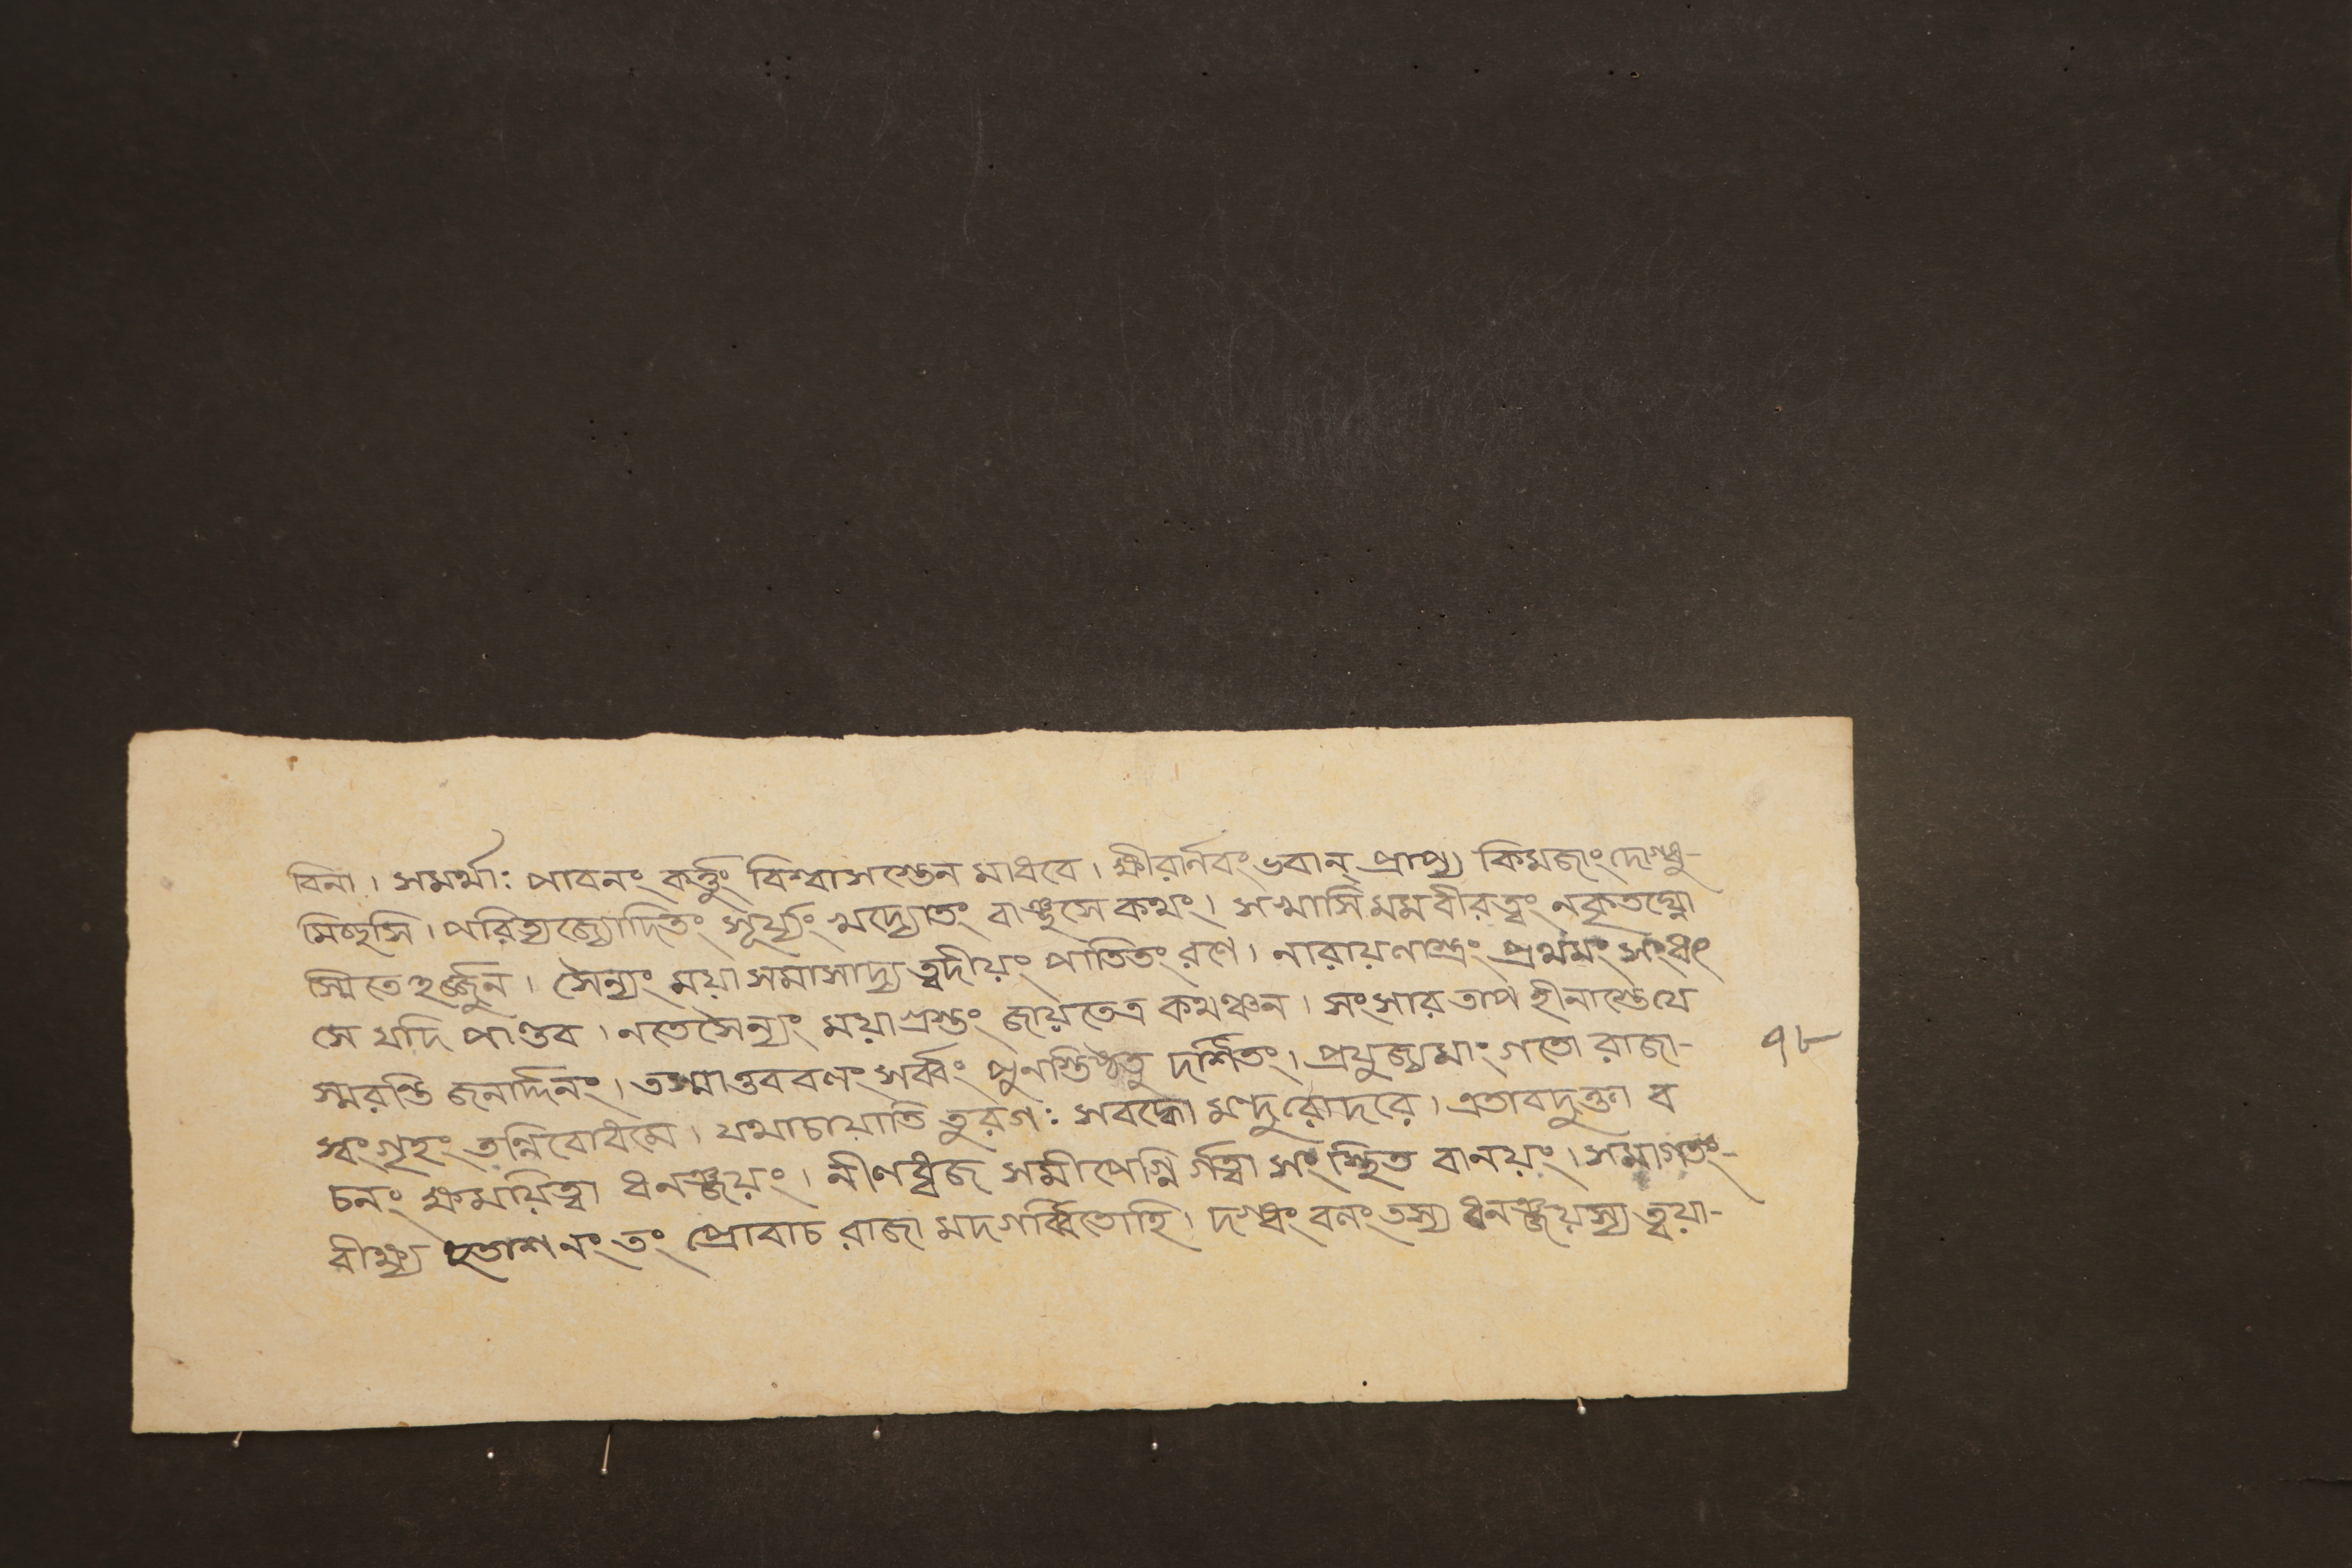 বিনা। সমর্থা: পাবনং কর্ত্তুং বিশ্বাসস্তেন মাধবে। ক্ষীরার্নবং ভবান্ প্রাপ্য কিমজাং দোগ্ধু-
মিচ্ছসি। পরিত্যজ্যোদিতং সূর্য্যং খদ্যোতং বাঞ্ছসে কথং। সখাসি মম বীরত্বং নকৃতঘ্নো
স্মিতেহর্জ্জুন। সৈন্যং ময়া সমাসাদ্য ত্বদীয়ং পাতিতং রণে। নারায়ণাস্ত্রং প্রথমং সংধং
সে যদি পাণ্ডব। নতে সৈন্যং ময়া গ্রস্তং জায়তেত্র কথঞ্চন। সংসার তাপ হীনাস্তে যে
স্মরন্তি জনার্দ্দনং। তস্মাত্তব বলং সর্ব্বং পুনস্তিষ্ঠতু দর্শিতং। প্রযুজ্যমাং গতো রাজা-
স্বং গৃহং তন্নিবোধমে। যথাচায়াতি তুরগ: সবদ্ধো মন্দুরোদরে। এতাবদুক্তা ব
চনং ক্ষময়িত্বা ধনঞ্জয়ং। নীলধ্বজ সমীপেগ্নি র্গত্বা সংস্থিত বানয়ং। সমাগতং-
বীক্ষ্য হুতাশনং তং প্রোবাচ রাজা মদগর্ব্বিতোহি। দগ্ধং বলং তস্য ধনঞ্জয়স্য ত্বয়া-
৭৮